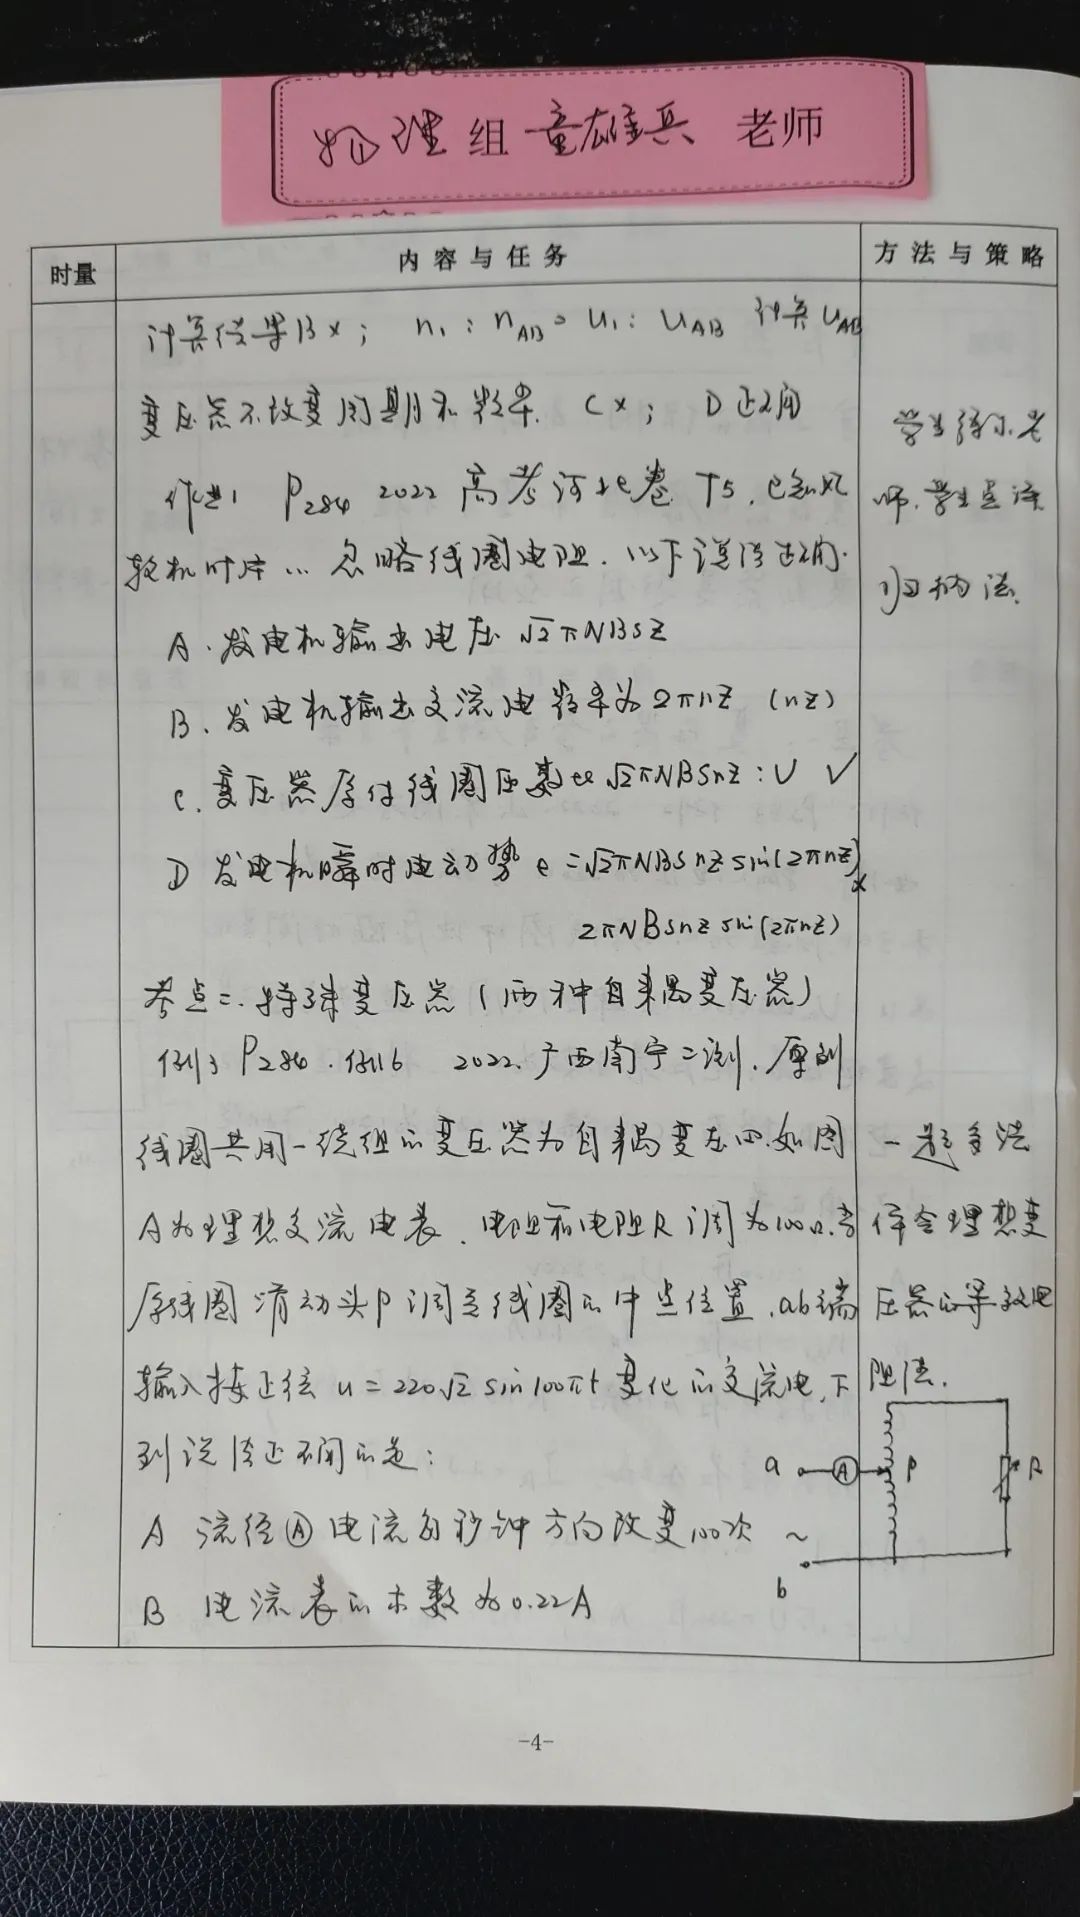 物理组童雄兵 老师
时量
内容与任务
方法与策略
计算结果B×; n₁:n_AB=U₁:U_AB 计算U_AB
变压器不改变周期和频率. C×; D正确
作业1 P₂₈₄ 2022高考河北卷 T5.已知风
轮机叶片…忽略线圈电阻.以下说法正确.
A.发电机输出电压 √2πNBSZ
B.发电机输出交流电频率为2πnZ (nZ)
C.变压器原付线圈匝数比√2πNBSnZ:U √
D 发电机瞬时电动势 e=√2πNBSnZ sin(2πnZ) ×
2πNBSnZ sin(2πnZ)
考点二.特殊变压器(两种自耦变压器)
例3 P₂₈₄.例6 2022.广西南宁二测.原副
线圈共用一绕组的变压器为自耦变压四.如图
A为理想交流电表.电阻箱电阻R调为100Ω.当
原线圈滑动头P调至线圈的中点位置.ab端
输入接正弦 u=220√2 sin100πt 变化的交流电.下
列说法正确的是:
A 流经Ⓐ电流每秒钟方向改变100次
B 电流表的示数为0.22A
师.学生
归纳法.
一题多法
体会理想变
压器的等效电
阻法.
a
A
P
R
~
b
-4-